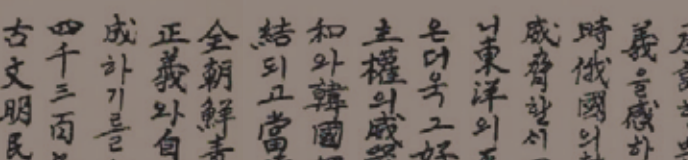 義을感하
時俄國의
威脅할새
니東洋의
은더욱그
主權의威
和와韓國
結되고當
全朝鮮靑
正義와自
成하기를
四千三百
古文明民